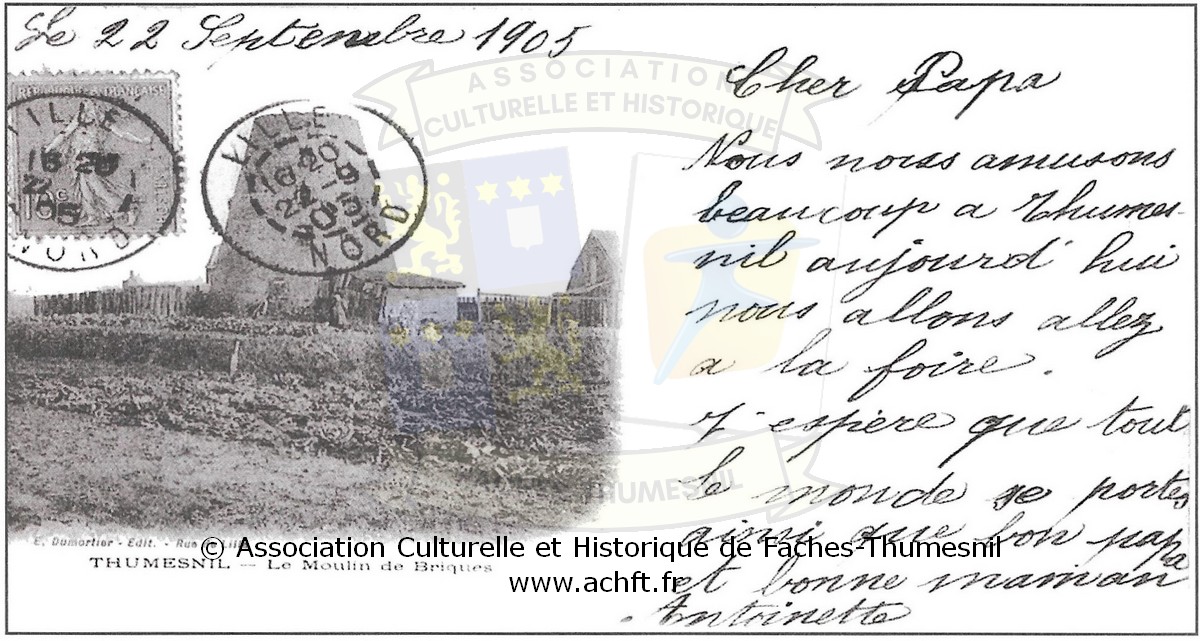 Le 22 Septembre 1905
RÉPUBLIQUE FRANÇAISE
LILLE
16 20
22
10c
05
NORD
LILLE
16 20
22 - 9
05
NORD
ASSOCIATION
CULTURELLE ET HISTORIQUE
Cher Papa
Nous nous amusons
beaucoup a Thumes-
nil aujourd'hui
nous allons allez
a la foire.
J'espère que tout
le monde se portes
ainsi que bon papa
et bonne maman
Antoinette
THUMESNIL
E. Dumortier - Edit. - Rue de Lille
© Association Culturelle et Historique de Faches-Thumesnil
THUMESNIL — Le Moulin de Briques
www.achft.fr